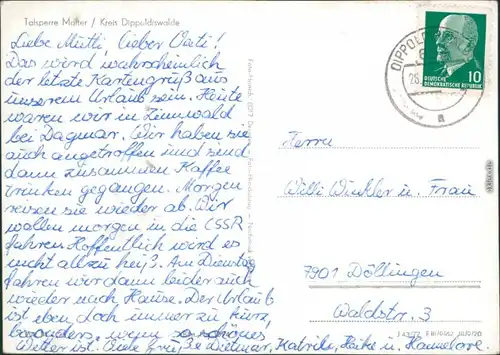 Talsperre Malter / Kreis Dippoldiswalde
Liebe Mutti, lieber Vati!
Das wird wahrscheinlich
der letzte Kartengruß aus
unserem Urlaub sein. Heute
waren wir in Zinnwald
bei Dagmar. Wir haben sie
auch angetroffen und sind
dann zusammen Kaffee
trinken gegangen. Morgen
reisen sie wieder ab. Wir
wollen morgen in die CSSR
fahren. Hoffentlich wird es
nicht allzu heiß. Am Dienstag
fahren wir dann leider auch
wieder nach Hause. Der Urlaub
ist eben doch immer zu kurz,
besonders, wenn so schönes
Wetter ist. Viele Grüße Dietmar, Katrike, Heike u. Hannelore.
DEUTSCHE
DEMOKRATISCHE REPUBLIK
10
DIPPOL
a
Herrn
Willi Winkler u. Frau
7901 Döllingen
Waldstr. 3